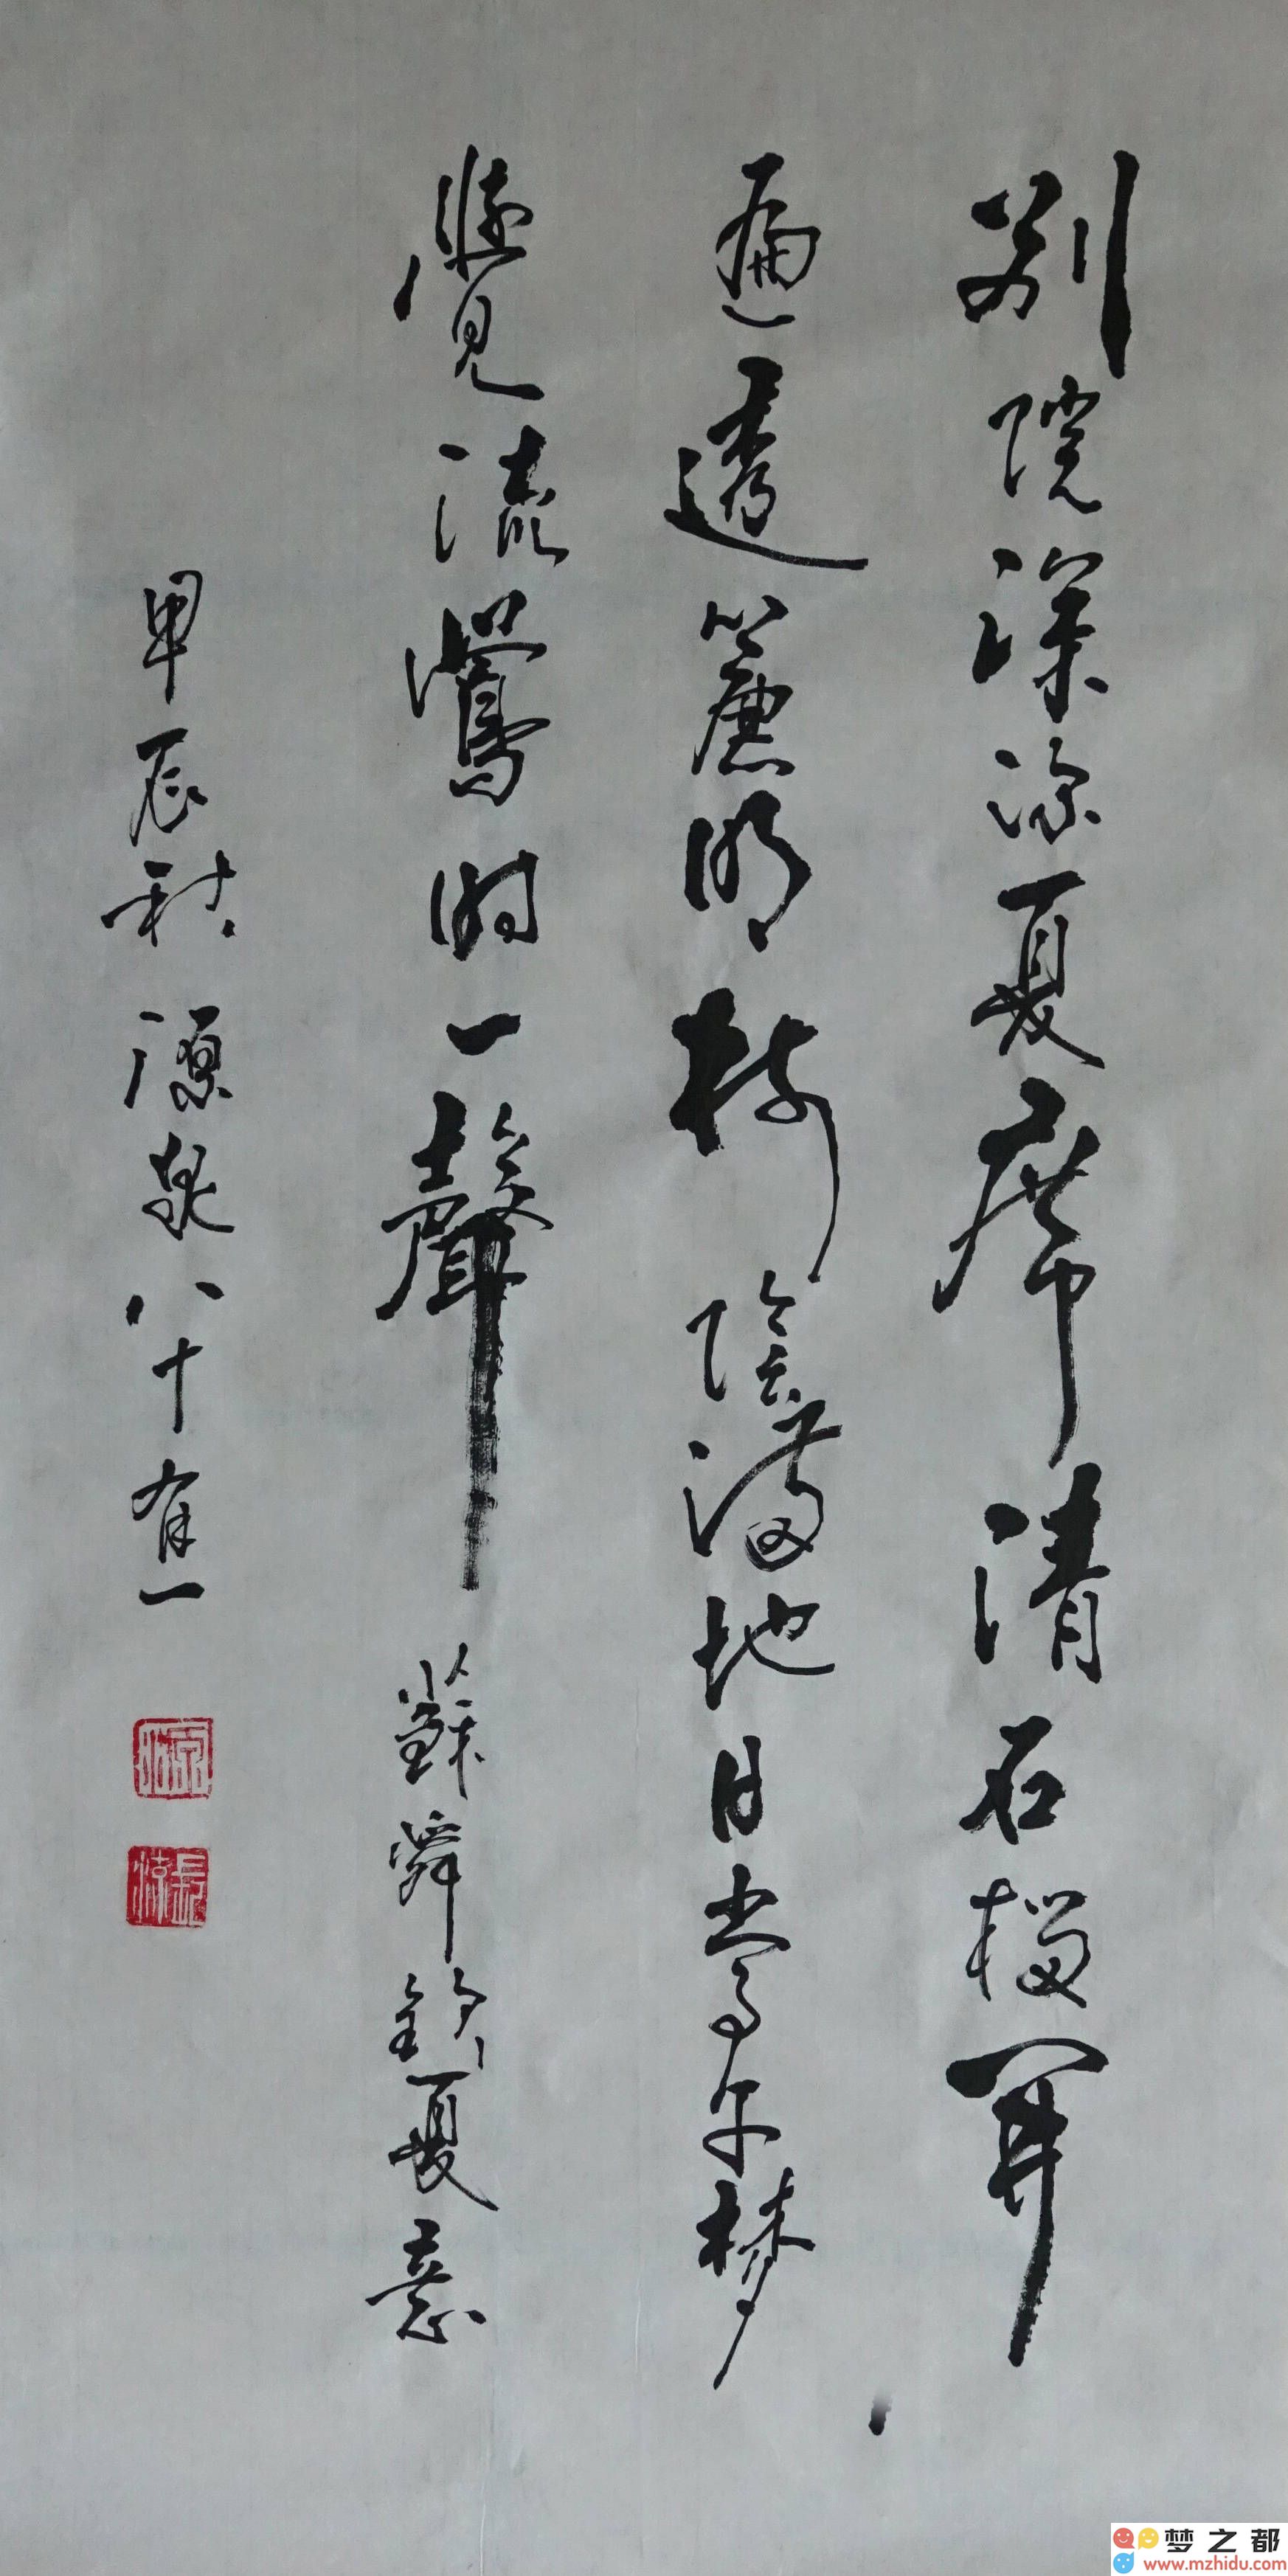 別院深深夏席清石榴開
遍透簾明樹陰滿地日當午梦
覺流鶯時一聲 蘇舜欽夏意
甲辰秋 源泉八十有一
梦之都
www.mzhidu.com